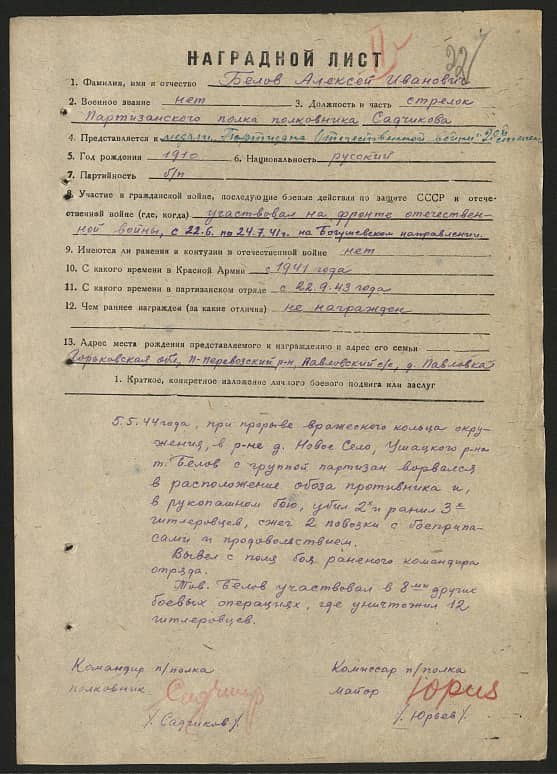 22
НАГРАДНОЙ ЛИСТ
1. Фамилия, имя и отчество Белов Алексей Иванович
2. Военное звание нет 3. Должность и часть стрелок
Партизанского полка полковника Садчикова
4. Представляется к медали "Партизана Отечественной войны" 2ой степени
5. Год рождения 1910 6. Национальность русский
7. Партийность б/п
8. Участие в гражданской войне, последующие боевые действия по защите СССР и отече-
ственной войне (где, когда) участвовал на фронте отечествен-
ной войны, с 22.6. по 24.7.41г. на Богушевском направлении.
9. Имеются ли ранения и контузии в отечественной войне нет
10. С какого времени в Красной Армии с 1941 года
11. С какого времени в партизанском отряде с 22.9.43 года
12. Чем раннее награжден (за какие отличия) не награжден
13. Адрес места рождения представляемого к награждению и адрес его семьи
Горьковская обл, П-Перевозский р-н, Павловский с/с, д. Павловка
1. Краткое, конкретное изложение личного боевого подвига или заслуг
5.5.44 года, при прорыве вражеского кольца окру-
жения, в р-не д. Новое Село, Ушацкого р-на
т. Белов с группой партизан ворвался
в расположение обоза противника и,
в рукопашном бою, убил 2х и ранил 3х
гитлеровцев, сжег 2 повозки с боеприпа-
сами и продовольствием.
Вывел с поля боя раненого командира
отряда.
Тов. Белов участвовал в 8ми других
боевых операциях, где уничтожил 12
гитлеровцев.
Командир п/полка Комиссар п/полка
полковник Садчик майор Юрия
/Садчиков/. /. Юрьев/.